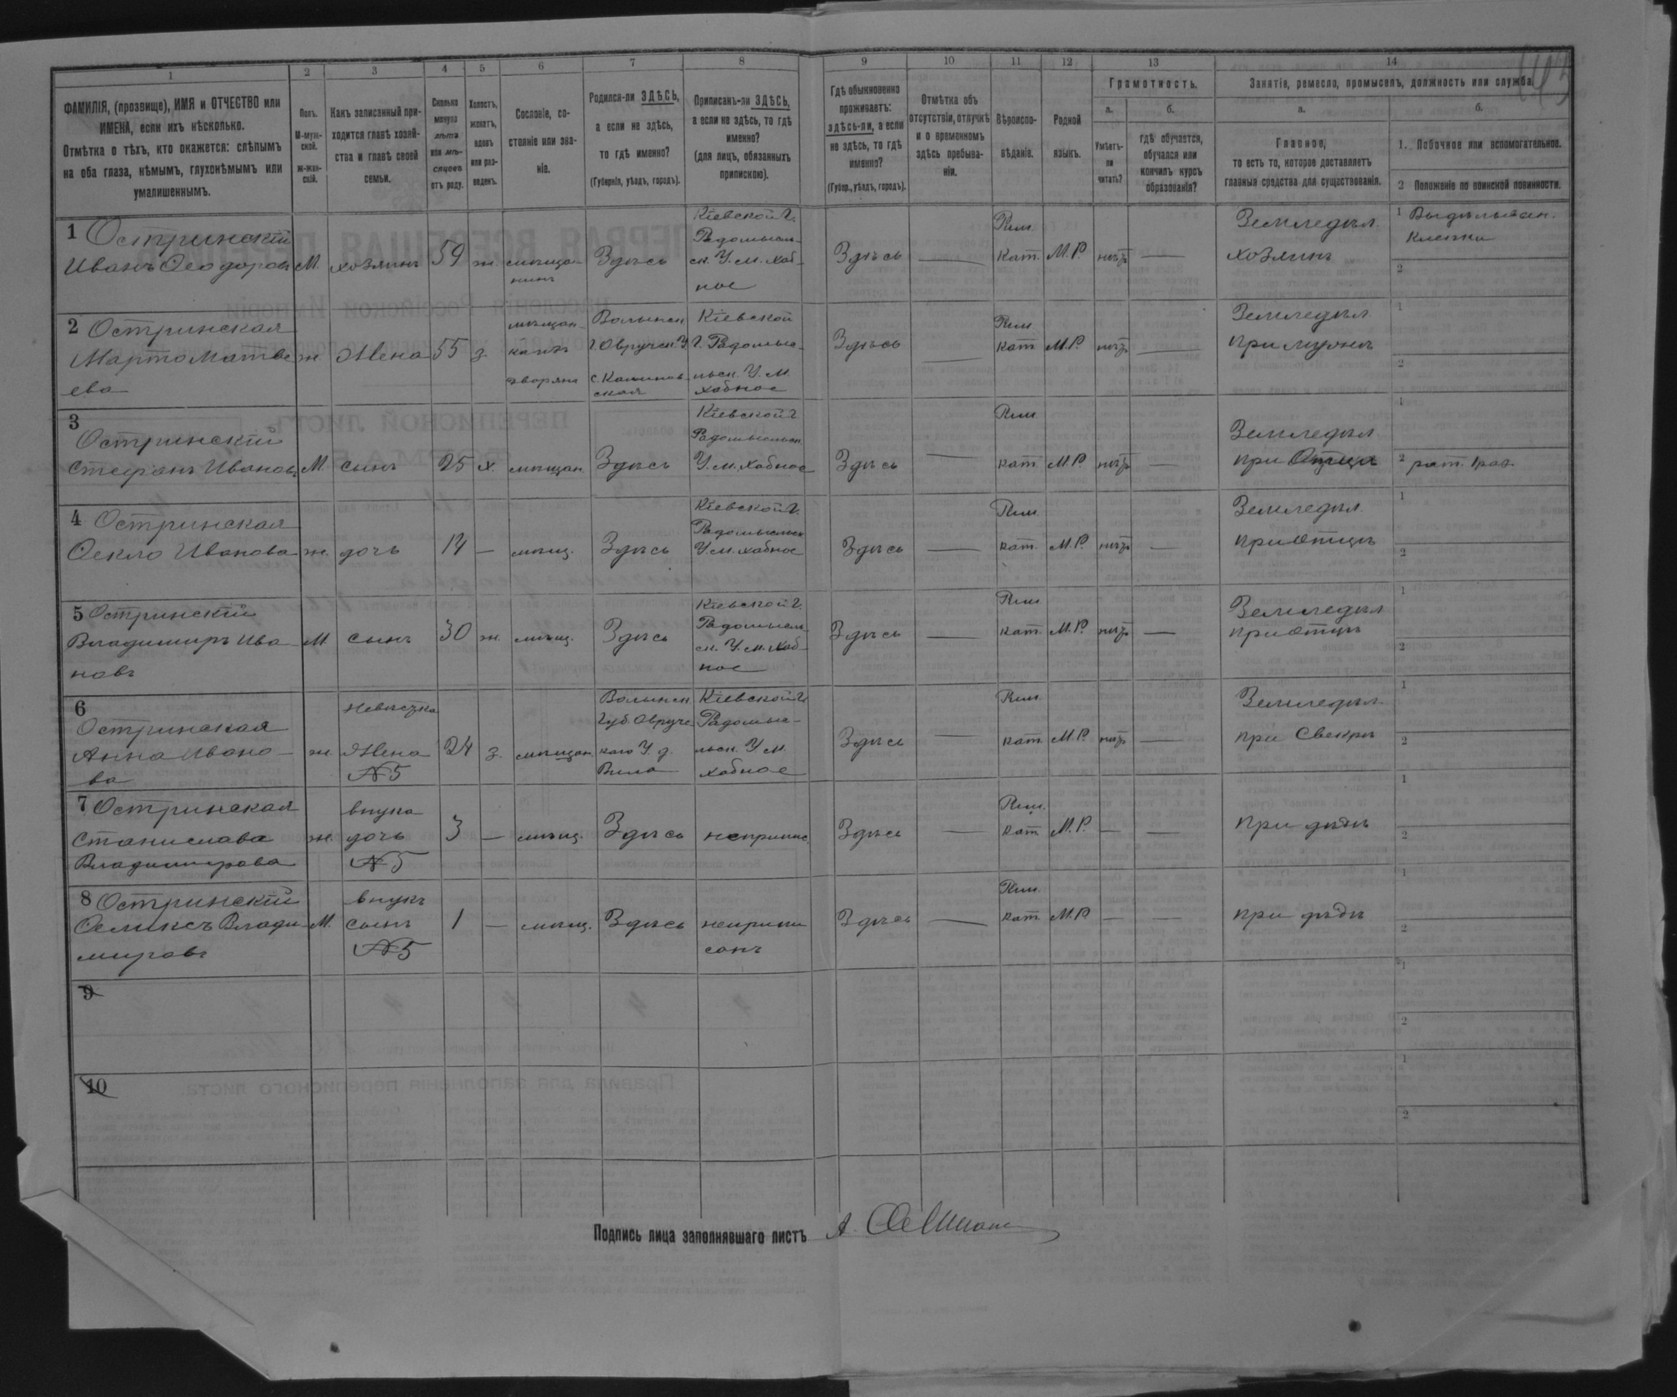 1 2 3 4 5 6 7 8 9 10 11 12 13 14
ФАМИЛІЯ, (прозвище), ИМЯ и ОТЧЕСТВО или
ИМЕНА, если ихъ нѣсколько.
Отмѣтка о тѣхъ, кто окажется: слѣпымъ
на оба глаза, нѣмымъ, глухонѣмымъ или
умалишеннымъ.
Полъ.
М-муж-
ской.
ж-жен-
скій.
Какъ записанный при-
ходится главѣ хозяй-
ства и главѣ своей
семьи.
Сколько
минуло
лѣтъ
или мѣс-
сяцевъ
отъ роду.
Холостъ,
женатъ,
вдовъ
или раз-
веденъ.
Сословіе, со-
стояніе или зва-
ніе.
Родился-ли ЗДѢСЬ,
а если не здѣсь,
то гдѣ именно?
(Губернія, уѣздъ, городъ).
Приписанъ-ли ЗДѢСЬ,
а если не здѣсь, то гдѣ
именно?
(для лицъ, обязанныхъ
припискою).
Гдѣ обыкновенно
проживаетъ:
здѣсь-ли, а если
не здѣсь, то гдѣ
именно?
(Губер., уѣздъ, городъ).
Отмѣтка объ
отсутствіи, отлучкѣ
и о временномъ
здѣсь пребыва-
ніи.
Вѣроиспо-
вѣданіе.
Родной
языкъ.
Грамотность.
а.
Умѣетъ-
ли
читать?
б.
гдѣ обучается,
обучался или
кончилъ курсъ
образованія?
Занятія, ремесло, промыселъ, должность или служба.
а.
Главное,
то есть то, которое доставляетъ
главныя средства для существованія.
б.
1. Побочное или вспомогательное.
2 Положеніе по воинской повинности.
1 Остринскій
Иванъ Ѳеодоровъ М. хозяинъ 59 ж. мѣщанинъ Здѣсь Кіевской г. Радомысльск. У. м. Хабное Здѣсь — Рим. Кат. М.Р. нѣтъ — Земледѣл. хозяинъ 1 Выдѣлыван. клепки
2
2 Остринская
Марта Матве
ева ж Жена 55 з. дворян Волынск г. Овручск. У с. Кіевской г. Радомысльск. У. м. Хабное Здѣсь — Рим. кат М.Р. нѣтъ — Земледѣл при мужѣ
1
2
3
Остринскій
Стефанъ Ивановъ М. сынъ 25 х. мѣщан. Здѣсь Кіевской г. Радомысльск У. м. Хабное Здѣсь — Рим. кат М.Р. нѣтъ — Земледѣл при Отцѣ
1
2 рат. 1 раз.
4 Остринская
Ѳекла Иванова ж. дочь 14 — мѣщ. Здѣсь Кіевской г. Радомысльск У. м. Хабное Здѣсь — Рим. кат. М.Р. нѣтъ — Земледѣл при Отцѣ
1
2
5 Остринскій
Владимиръ Ива
новъ М сынъ 30 ж мѣщ. Здѣсь Кіевской г. Радомысльск. У. м. Хабное Здѣсь — Рим. кат. М.Р. нѣтъ — Земледѣл при Отцѣ
1
2
6
Остринская
Анна Ивано
ва ж. невѣстка Жена №5 24 з. мѣщан Волынск Губ Овручскаго У д. Кіевской г. Радомысльск. У м. Хабное Здѣсь — Рим. кат М.Р. нѣтъ — Земледѣл. при Свекрѣ
1
2
7 Остринская
Станислава
Владимирова ж. внука дочь №5 3 — мѣщ. Здѣсь неприпис Здѣсь — Рим. кат М.Р. — — при дѣдѣ
1
2
8 Остринскій
Феликсъ Влади
мировъ М. внукъ сынъ №5 1 — мѣщ. Здѣсь неприписанъ Здѣсь — Рим. кат М.Р. — — при дѣдѣ
1
2
9
1
2
10
1
2
Подпись лица заполнявшаго листъ А.